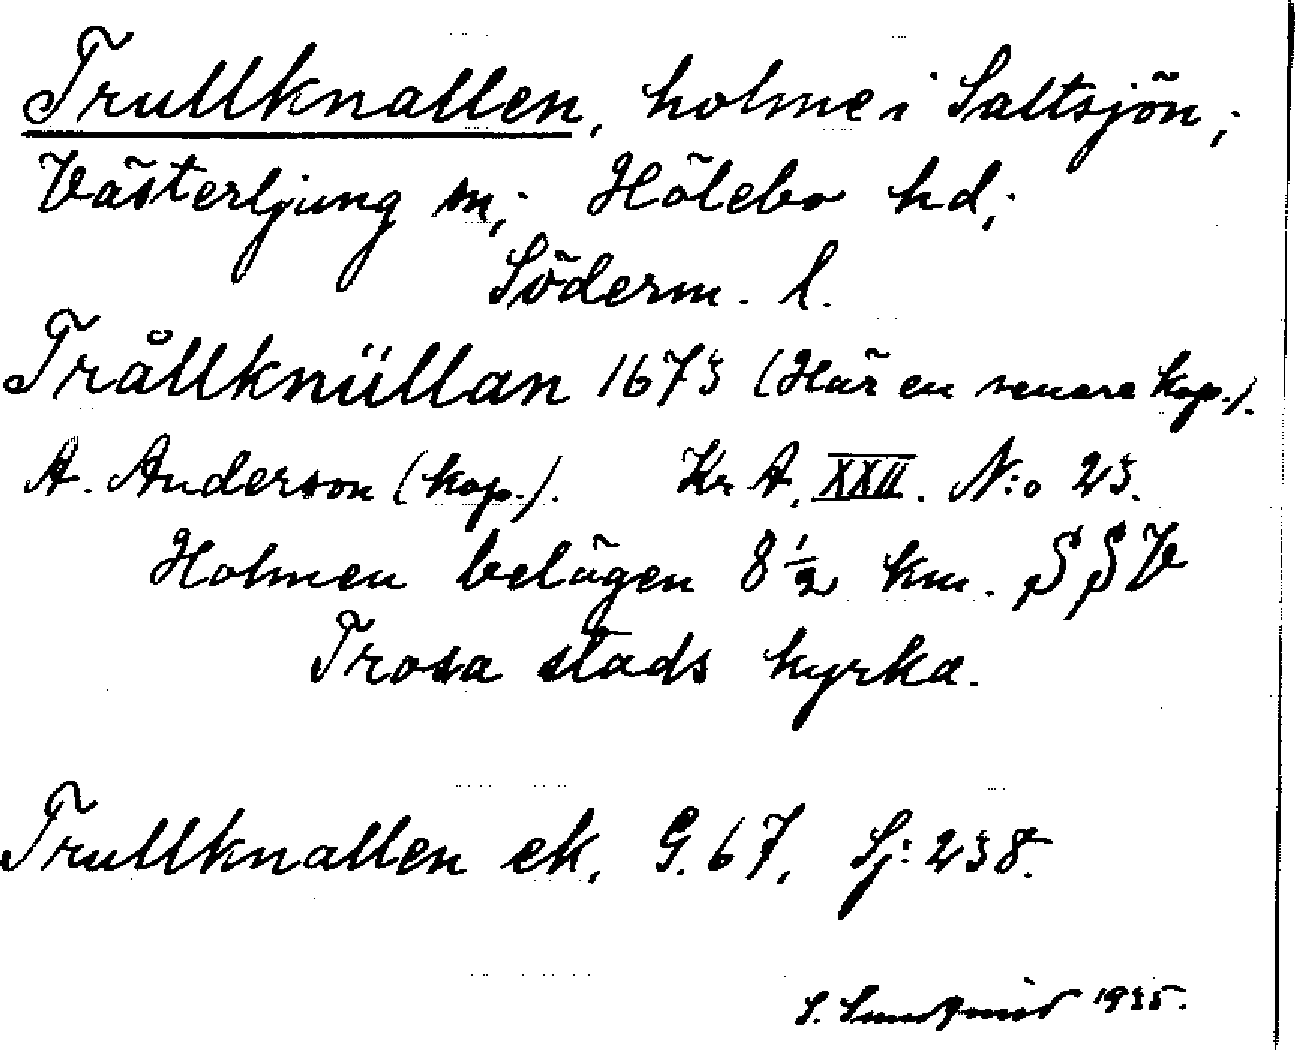 Trullknallen, holme i Saltsjön,;
Västerljung sn,; Hölebo hd,;
Söderm. l.
Trållknüllan 1673 (Här en senare kop.).
A. Anderson (kop.). Kr A. XXII. N:o 23.
Holmen belägen 8 1/2 km. SSV
Trosa stads kyrka.
Trullknallen ek. G. 67, Sj: 238.
S. Sundqvist 1935.